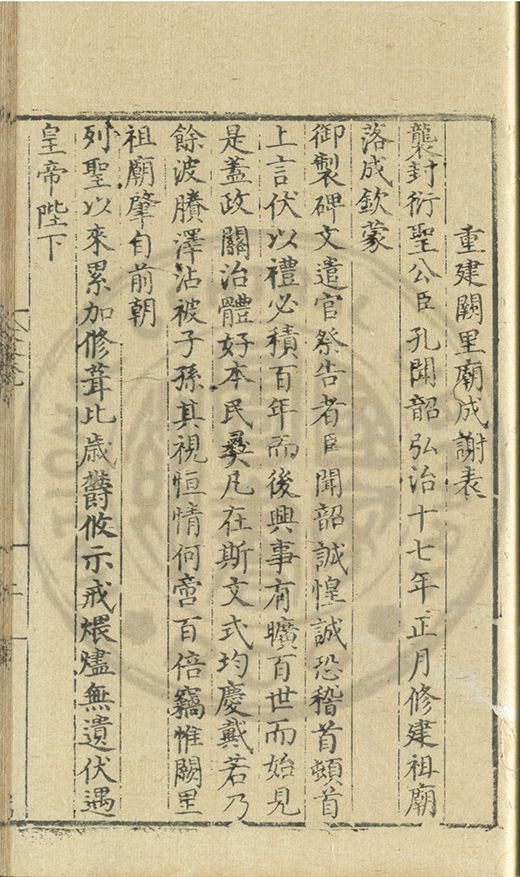 重建闕里廟成謝表
襲封衍聖公臣孔聞韶弘治十七年正月修建祖廟
落成欽蒙
御製碑文遣官祭告者臣聞韶誠惶誠恐稽首頓首
上言伏以禮必積百年而後興事有曠百世而始見
是盖政關治體好本民彝凡在斯文式均慶戴若乃
餘波賸澤沾被子孫其視恒情何啻百倍竊惟闕里
祖廟肇自前朝
列聖以來累加修葺比歲欝攸示戒煨燼無遺伏遇
皇帝陛下